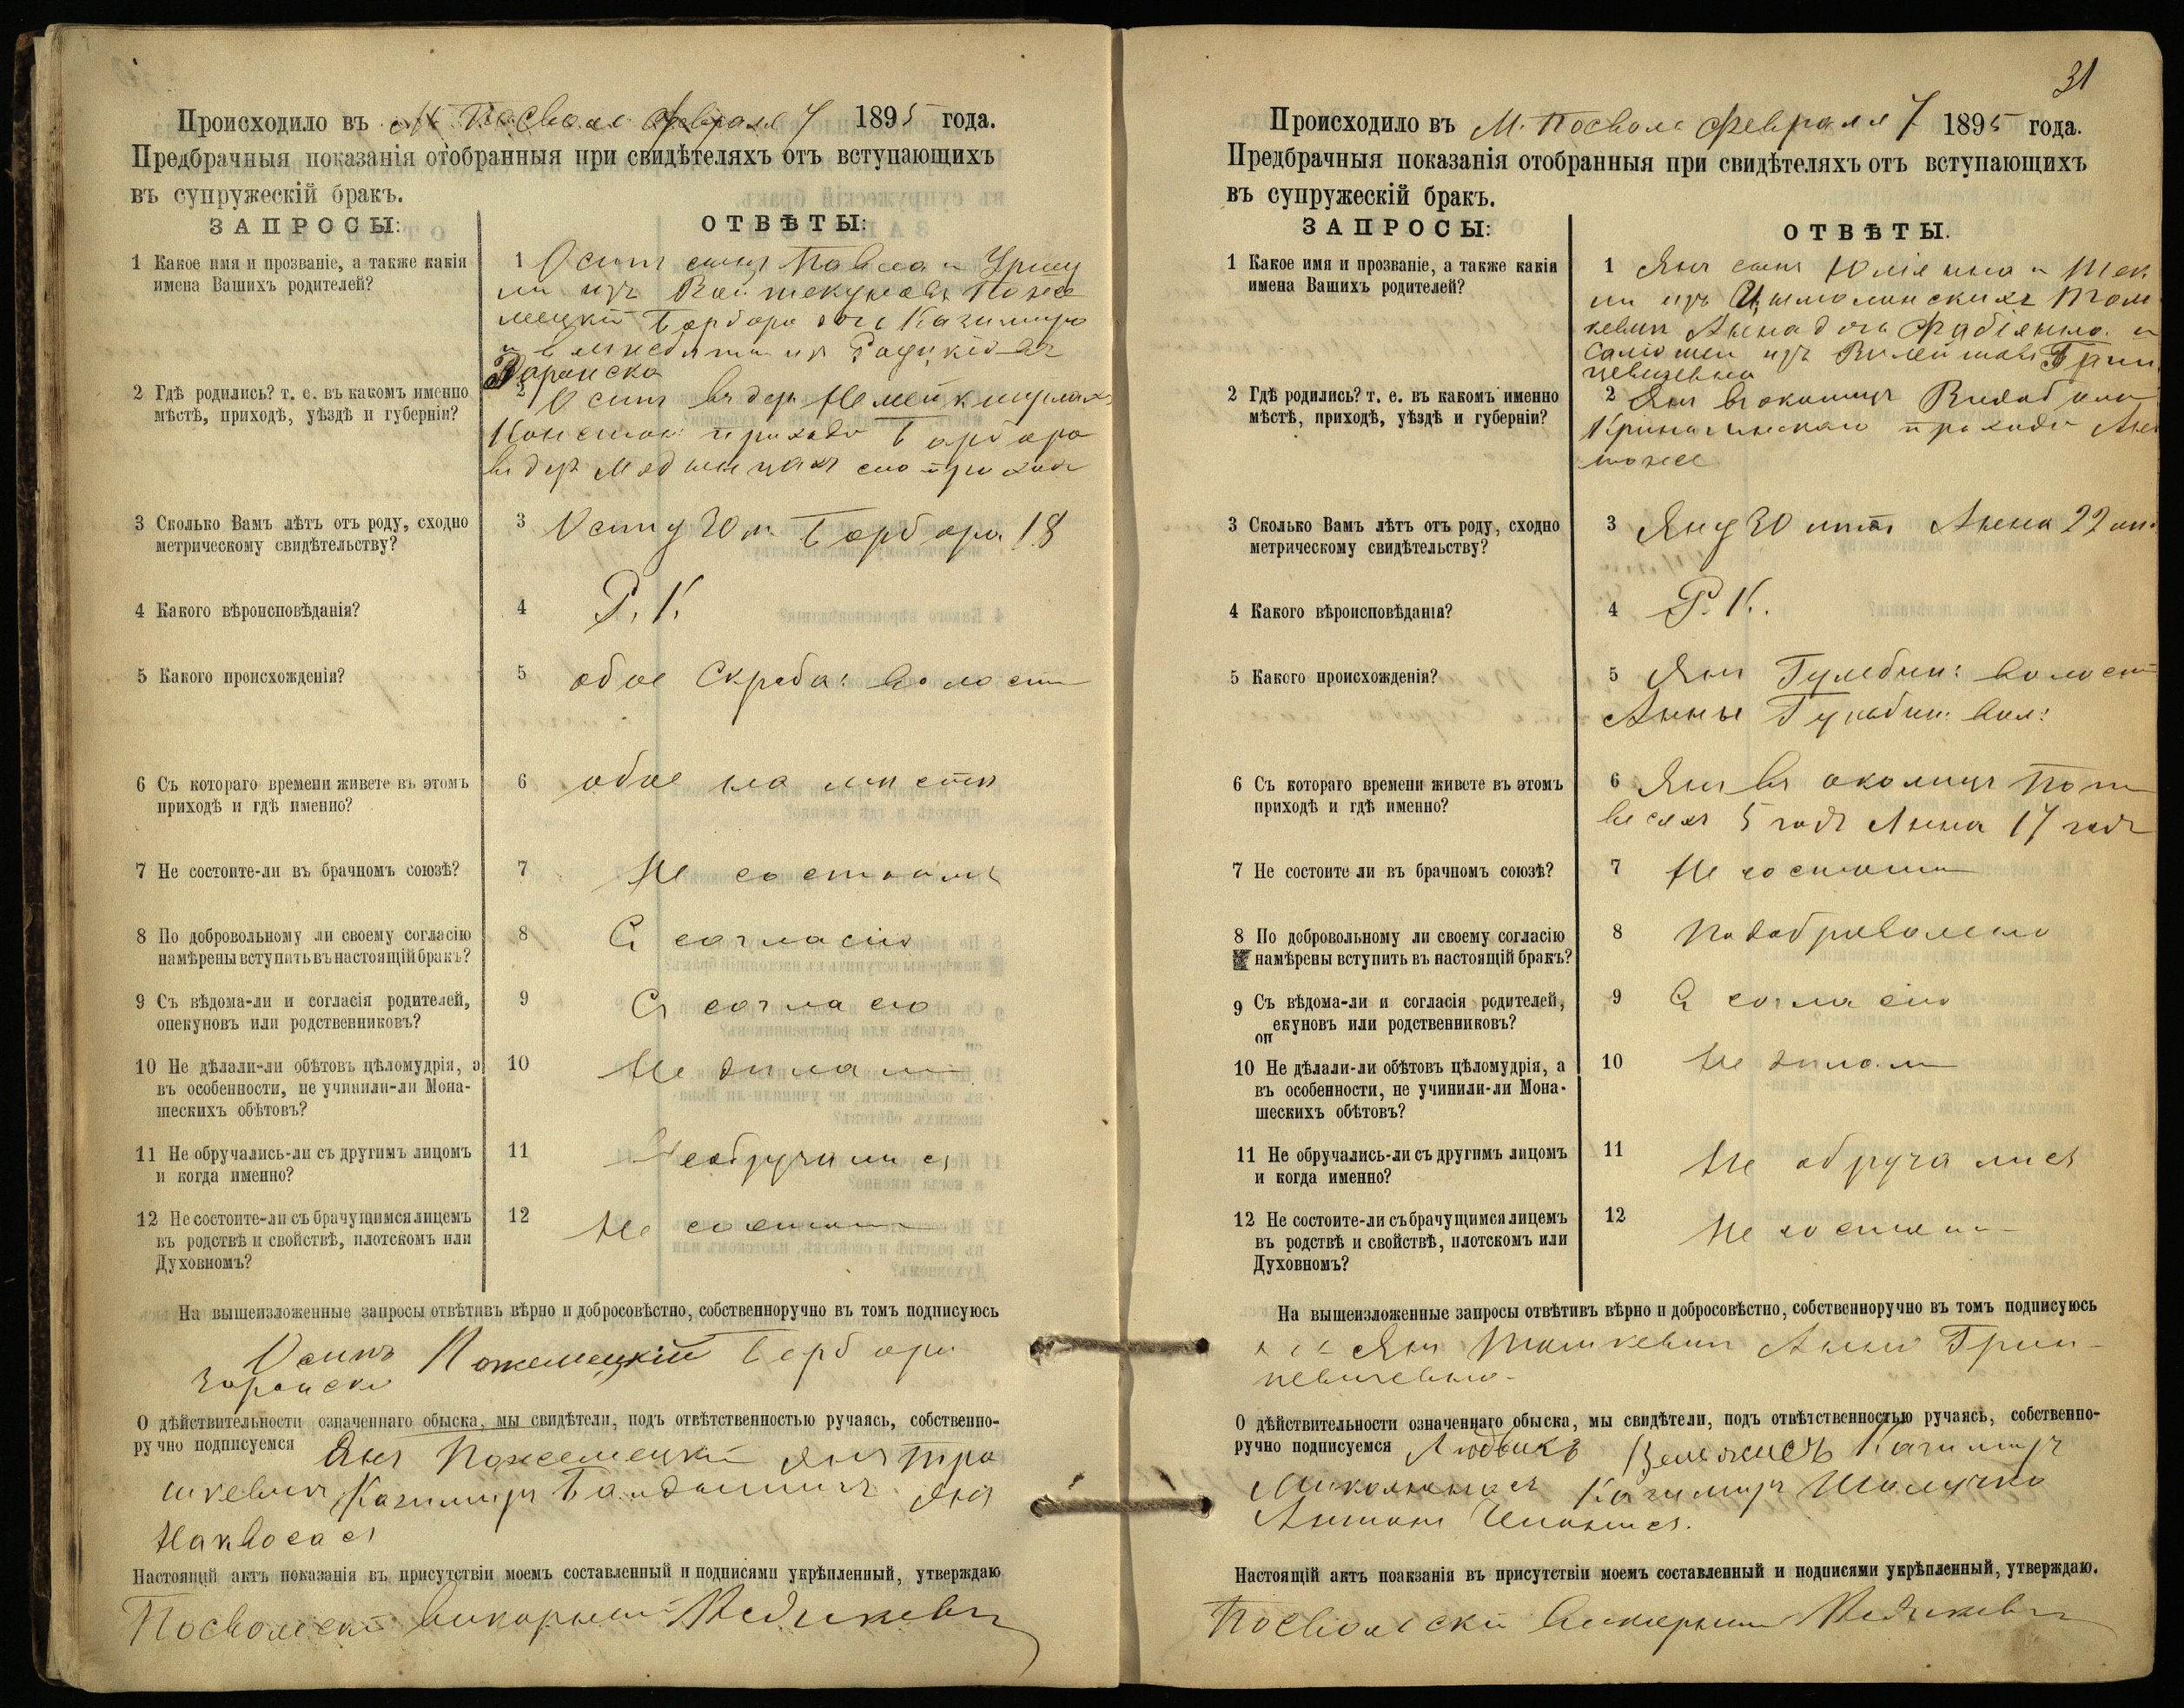 Происходило въ м. Посволе февраля 7 1895 года.
Предбрачныя показанія отобранныя при свидѣтеляхъ отъ вступающихъ
въ супружескій бракъ.
ЗАПРОСЫ:
ОТВѢТЫ:
1 Какое имя и прозваніе, а также какія
имена Вашихъ родителей?
1 Осипъ сынъ Павла и
изъ
Барбара дочь Казимира
2 Гдѣ родились? т. е. въ какомъ именно
мѣстѣ, приходѣ, уѣздѣ и губерніи?
2 Осипъ въ дер.
прихода Барбара
въ дер.
3 Сколько Вамъ лѣтъ отъ роду, сходно
метрическому свидѣтельству?
3 Осипу 30 л. Барбара 18
4 Какого вѣроисповѣданія?
4 Р. К.
5 Какого происхожденія?
5 обое Скроба: волости
6 Съ котораго времени живете въ этомъ
приходѣ и гдѣ именно?
6 обое на мѣстѣ
7 Не состоите-ли въ брачномъ союзѣ?
7 Не состоимъ
8 По добровольному ли своему согласію
намѣрены вступить въ настоящій бракъ?
8 Съ согласію
9 Съ вѣдома-ли и согласія родителей,
опекуновъ или родственниковъ?
9 Съ согласію
10 Не дѣлали-ли обѣтовъ цѣломудрія, а
въ особенности, не учинили-ли Мона-
шескихъ обѣтовъ?
10 Не дѣлали
11 Не обручались-ли съ другимъ лицомъ
и когда именно?
11
12 Не состоите-ли съ брачущимся лицемъ
въ родствѣ и свойствѣ, плотскомъ или
Духовномъ?
12 Не состоимъ
На вышеизложенные запросы отвѣтивъ вѣрно и добросовѣстно, собственноручно въ томъ подписуюсь
Осипъ Пожемецкій Барбара
О дѣйствительности означеннаго обыска, мы свидѣтели, подъ отвѣтственностью ручаясь, собственно-
ручно подписуемся Янъ Пожемецкій Янъ
Казимиръ Янъ
Наквосасъ
Настоящій актъ показанія въ присутствіи моемъ составленный и подписями укрѣпленный, утверждаю
Посвольскій викарный
31
Происходило въ М. Посволе Февраля 7 1895 года.
Предбрачныя показанія отобранныя при свидѣтеляхъ отъ вступающихъ
въ супружескій бракъ.
ЗАПРОСЫ:
ОТВѢТЫ.
1 Какое имя и прозваніе, а также какія
имена Вашихъ родителей?
1 Янъ сынъ Юліяна и Тек
ли изъ
Анна дочь Фабіяна и
изъ
2 Гдѣ родились? т. е. въ какомъ именно
мѣстѣ, приходѣ, уѣздѣ и губерніи?
2 Янъ въ околицѣ
прихода
тоже
3 Сколько Вамъ лѣтъ отъ роду, сходно
метрическому свидѣтельству?
3 Яну 30 лѣтъ Анна 22
4 Какого вѣроисповѣданія?
4 Р. К.
5 Какого происхожденія?
5 Янъ Гулбин: волости
Анна вол:
6 Съ котораго времени живете въ этомъ
приходѣ и гдѣ именно?
6 Янъ въ околицѣ
5 годъ Анна 17 годъ
7 Не состоите ли въ брачномъ союзѣ?
7 Не состоимъ
8 По добровольному ли своему согласію
намѣрены вступить въ настоящій бракъ?
8 По добровольно
9 Съ вѣдома-ли и согласія родителей,
опекуновъ или родственниковъ?
9 Съ согласію
10 Не дѣлали-ли обѣтовъ цѣломудрія, а
въ особенности, не учинили-ли Мона-
шескихъ обѣтовъ?
10 Не дѣлали
11 Не обручались-ли съ другимъ лицомъ
и когда именно?
11 Не обручались
12 Не состоите-ли съ брачущимся лицемъ
въ родствѣ и свойствѣ, плотскомъ или
Духовномъ?
12 Не состоимъ
На вышеизложенные запросы отвѣтивъ вѣрно и добросовѣстно, собственноручно въ томъ подписуюсь
Янъ Анна Грин-
цевичевна
О дѣйствительности означеннаго обыска, мы свидѣтели, подъ отвѣтственностью ручаясь, собственно-
ручно подписуемся Людвикъ Казимиръ
Казимиръ
Антонъ
Настоящій актъ поакзанія въ присутствіи моемъ составленный и подписями укрѣпленный, утверждаю.
Посвольскій Викарный